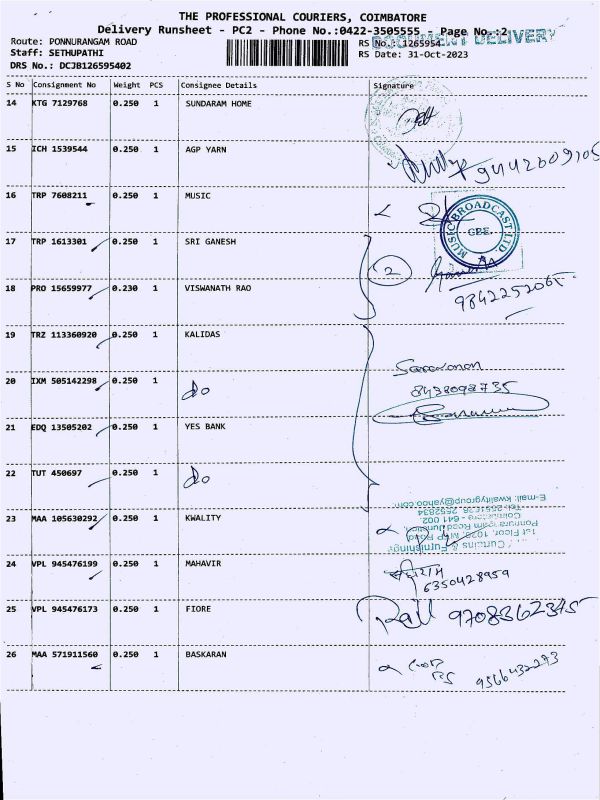 THE PROFESSIONAL COURIERS, COIMBATORE
Delivery Runsheet - PC2 - Phone No.:0422-3505555 Page No.:2
DOCUMENT DELIVERY
Route: PONNURANGAM ROAD
RS No.: 1265954
Staff: SETHUPATHI
RS Date: 31-Oct-2023
DRS No.: DCJB126595402
S No Consignment No Weight PCS Consignee Details Signature
14 KTG 7129768 0.250 1 SUNDARAM HOME
15 ICH 1539544 0.250 1 AGP YARN
9442609105
16 TRP 7608211 0.250 1 MUSIC
MUSIC BROADCAST LTD.
CBE.
17 TRP 1613301 0.250 1 SRI GANESH
2
18 PRO 15659977 0.230 1 VISWANATH RAO
9842252065
19 TRZ 113360920 0.250 1 KALIDAS
Saravanan
20 IXM 505142298 0.250 1 do
21 EDQ 13505202 0.250 1 YES BANK
22 TUT 450697 0.250 1 do
23 MAA 105630292 0.250 1 KWALITY
Curtains & Furnishing
1st Floor, 1078, MP Road
Ponnurangam Road Junction,
Coimbatore - 641 002
E-mail: kwalitygroup@yahoo.com
24 VPL 945476199 0.250 1 MAHAVIR
6350428959
25 VPL 945476173 0.250 1 FIORE
9708362345
26 MAA 571911560 0.250 1 BASKARAN
9566432273